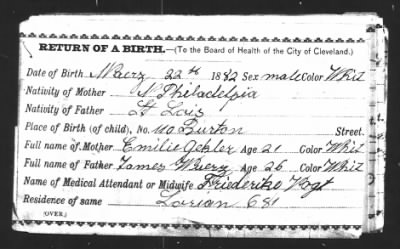 RETURN OF A BIRTH.—(To the Board of Health of the City of Cleveland.)
Date of Birth Maerz 22th 1882 Sex male Color Whit
Nativity of Mother N Philadelpia
Nativity of Father St Lois
Place of Birth (of child), No. 110 Burton Street.
Full name of Mother Emilie Gehler Age 21 Color Whit
Full name of Father James Age 26 Color Whit
Name of Medical Attendant or Midwife Friederike Vogt
Residence of same Lorian 681
(OVER.)